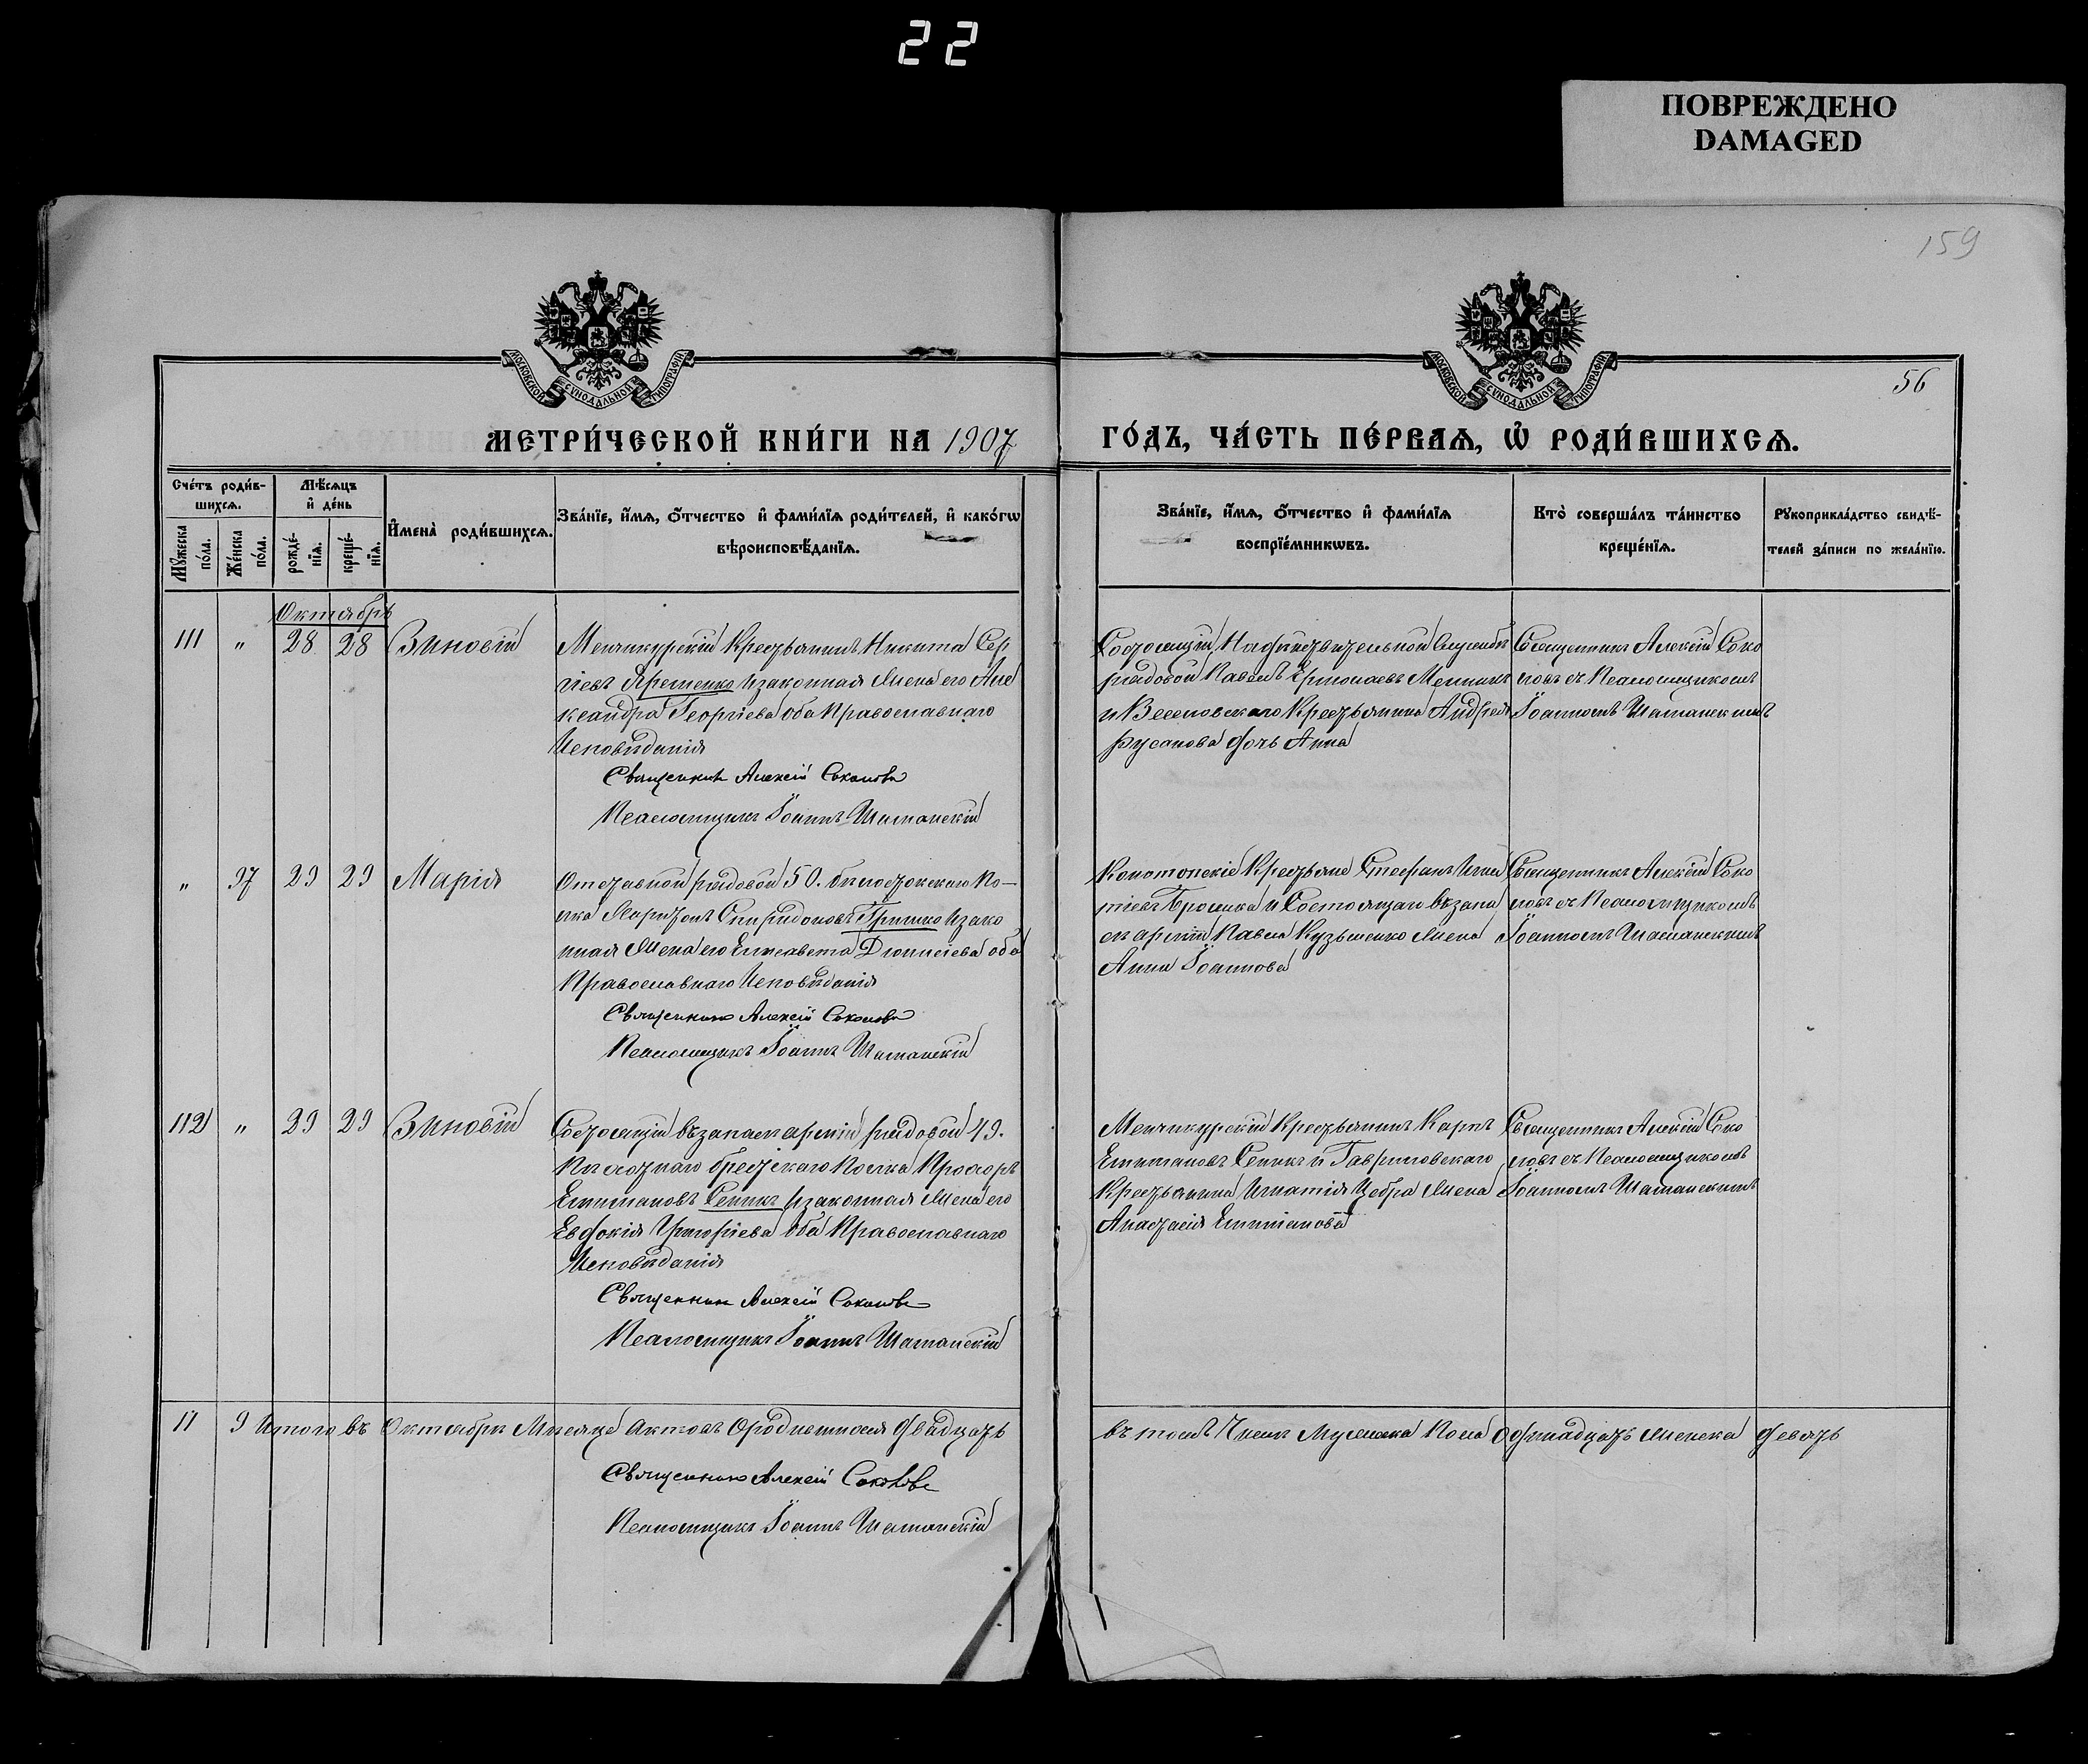 22
ПОВРЕЖДЕНО
DAMAGED
159
МОСКОВСКОЙ СѴНОДАЛЬНОЙ ТИПОГРАФІИ
МОСКОВСКОЙ СѴНОДАЛЬНОЙ ТИПОГРАФІИ
56
МЕТРИ́ЧЕСКОЙ КНИ́ГИ НА 1907
ГО́ДЪ, ЧА́СТЬ ПЕ́РВАѦ, Ѽ РОДИ́ВШИХСѦ.
Сче́тъ роди́в-
шихсѧ.
Мѣ́сѧцъ
и҆ де́нь
Мꙋ́жеска
по́ла.
Же́нска
по́ла.
рожде́-
нїѧ.
креще́-
нїѧ.
И҆мена̀ роди́вшихсѧ.
Зва́нїе, и҆́мѧ, ѻ҆́тчество и҆ фами́лїѧ роди́телей, и҆ како́гѡ
вѣроисповѣ́данїѧ.
Зва́нїе, и҆́мѧ, ѻ҆́тчество и҆ фами́лїѧ
воспрїе́мникѡвъ.
Кто̀ соверша́лъ та́инство
креще́нїѧ.
Рꙋкоприкла́дство свидѣ́-
телей за́писи по жела́нїю.
Октябрь
111 " 28 28 Зиновій
Менчикурскій Крестьянинъ Никита Сер
гіевъ Яременко и законная жена его Але
ксандра Георгіева оба Православнаго
Исповѣданія
Священникъ Алексій Соколовъ
Псаломщикъ Іоаннъ Шаманскій
рядовой Павелъ
и Веселовскаго Крестьянина Андрея
Русанова дочь Анна
Священникъ Алексій Соко
ловъ съ Псаломщикомъ
Іоанномъ Шаманскимъ
" 97 29 29 Марія
Отставной рядовой 50. Бѣлостокскаго По-
лка Харитонъ Спиридоновъ Гришко и зако
нная жена его Елисавета Діонисіева оба
Православнаго Исповѣданія
Священникъ Алексій Соколовъ
Псаломщикъ Іоаннъ Шаманскій
Конотопскіе Крестьяне Стефанъ Игна
тіевъ и Состоящаго въ запа
сѣ арміи Павла Кузьменко жена
Анна Іоаннова
Священникъ Алексій Соко
ловъ съ Псаломщикомъ
Іоанномъ Шаманскимъ
112 " 29 29 Зиновій
Состоящій въ запасѣ арміи рядовой 49.
Пѣхотнаго Брестскаго Полка Прохоръ
Емитановъ Сепикъ и законная жена его
Евдокія Григоріева оба Православнаго
Исповѣданія
Священникъ Алексій Соколовъ
Псаломщикъ Іоаннъ Шаманскій
Менчикурскій Крестьянинъ Карпъ
Емитановъ Сепикъ и Гавриловскаго
Крестьянина Игнатія Цебра жена
Анастасія Емитанова
Священникъ Алексій Соко
ловъ съ Псаломщикомъ
Іоанномъ Шаманскимъ
11 9 Итого въ Октябрѣ Мѣсяцѣ Актовъ О родившихся двадцать
въ томъ Числѣ Мужеска Пола Одинадцать женска девять
Священникъ Алексій Соколовъ
Псаломщикъ Іоаннъ Шаманскій